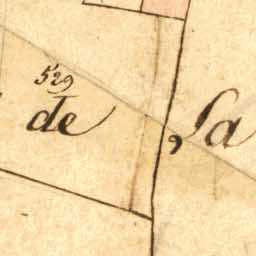 529
de Sa